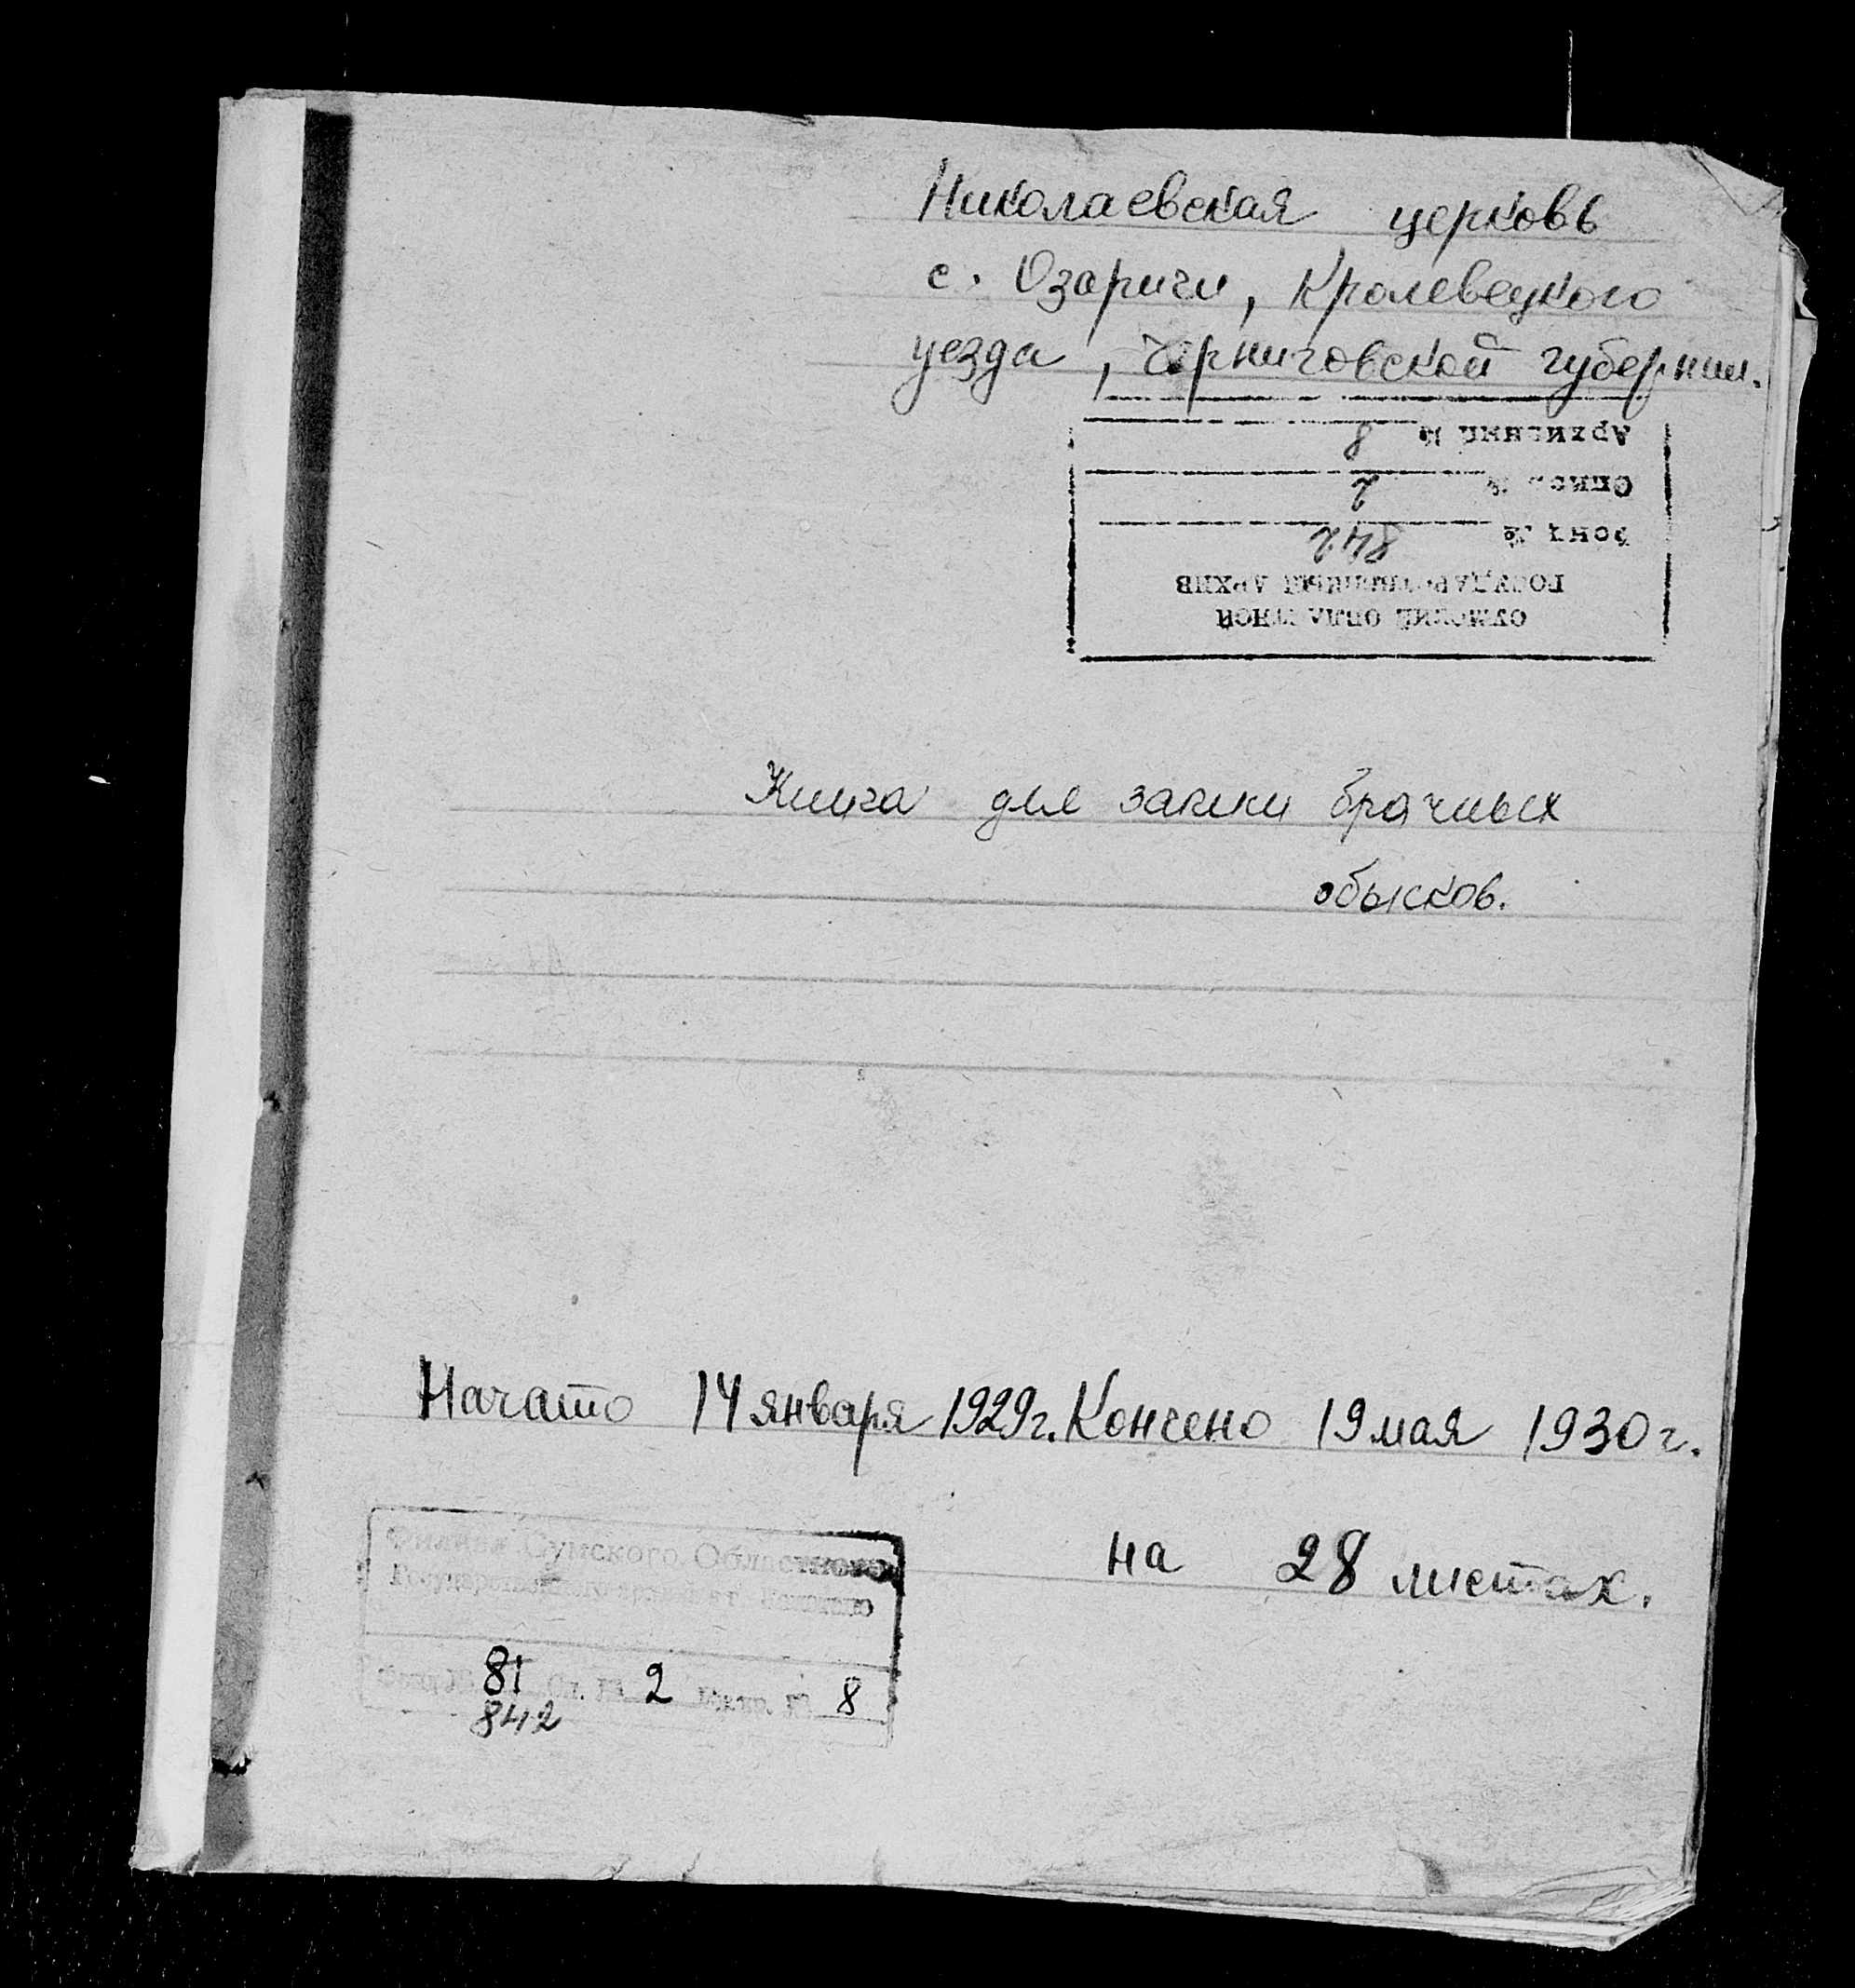 Николаевская церковь
с. Озаричи, Кролевецкого
уезда, Черниговской губернии.
Архивный № 8
Опись № 2
Фонд № 842
ГОСУДАРСТВЕННЫЙ АРХИВ
СУМСКИЙ ОБЛАСТНОЙ
Книга для записи брачных
обысков.
Начато 14 января 1929г. Кончено 19 мая 1930 г.
на 28 листах.
Филиал Сумского Областного
Государственного архива в г.
Фонд № 81 Оп. № 2 № 8
842